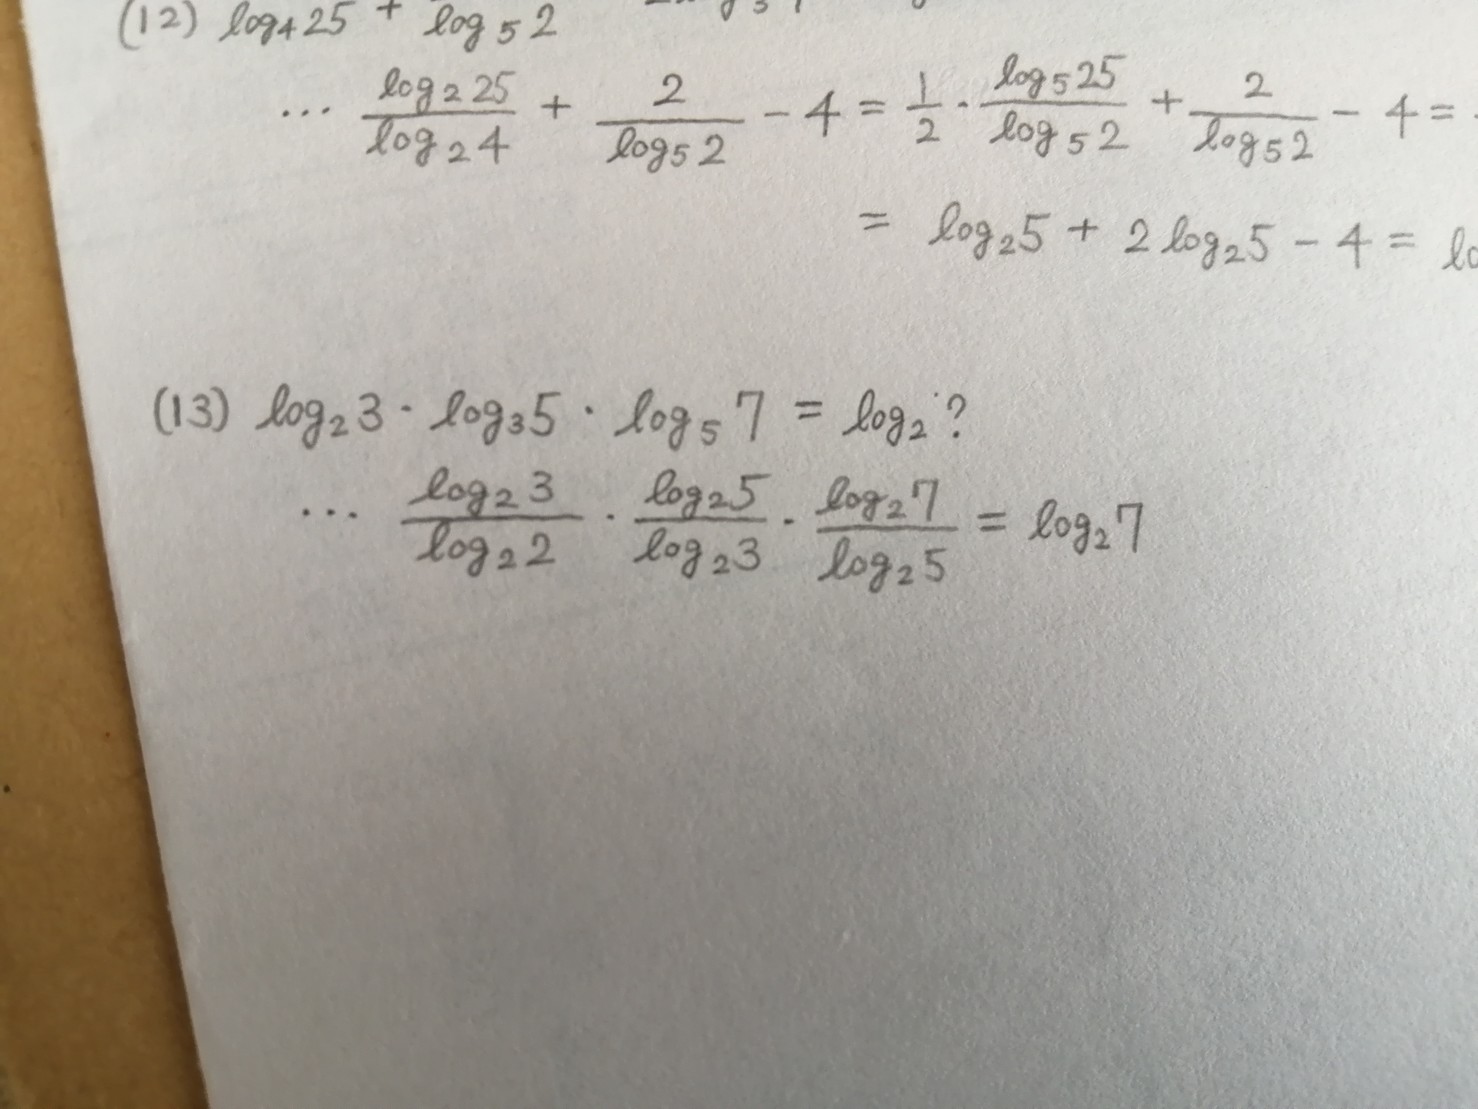 (12) log₄25 + log₅2
... log₂25/log₂4 + 2/log₅2 - 4 = 1/2 · log₅25/log₅2 + 2/log₅2 - 4 =
= log₂5 + 2log₂5 - 4 =
(13) log₂3 · log₃5 · log₅7 = log₂?
... log₂3/log₂2 · log₂5/log₂3 · log₂7/log₂5 = log₂7